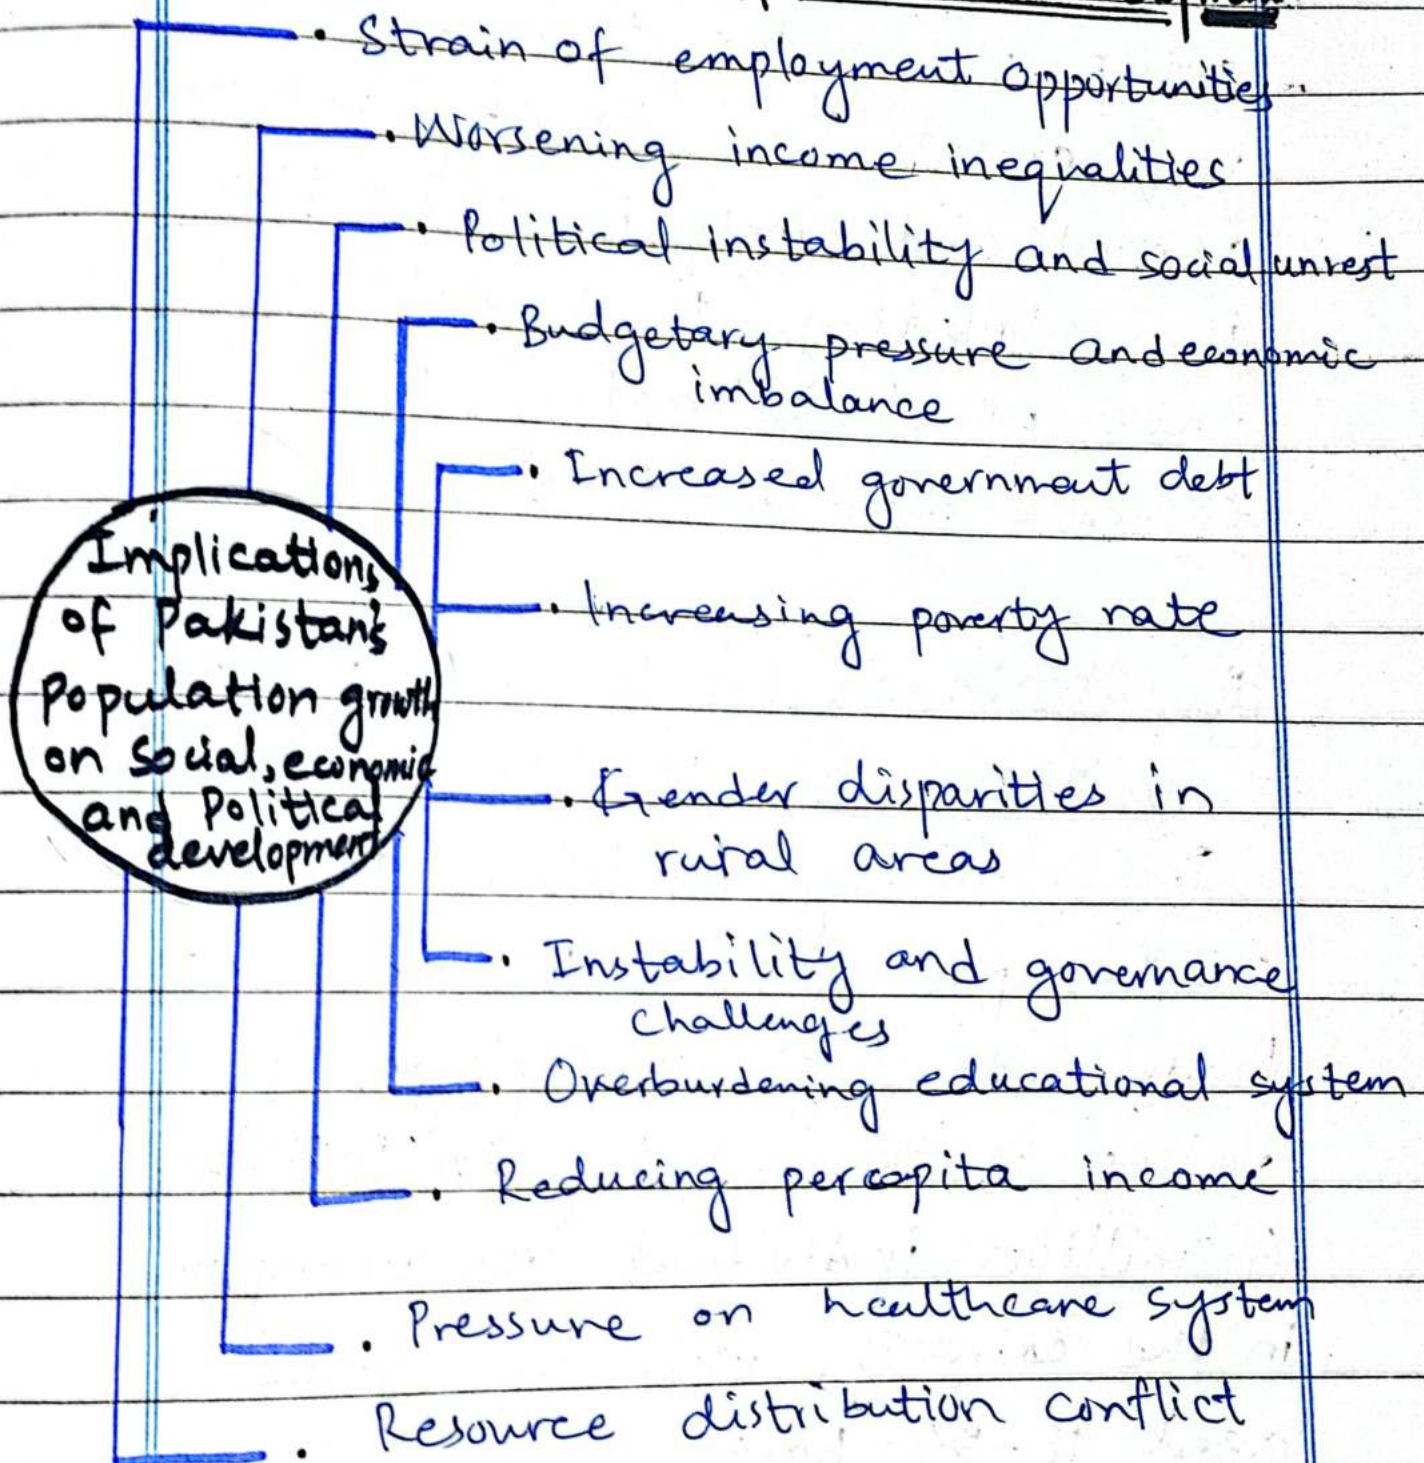 Strain of employment opportunities
Worsening income inequalities
Political instability and social unrest
Budgetary pressure and economic
imbalance
Increased government debt
Increasing poverty rate
Implications
of Pakistan's
Population growth
on Social, economic
and Political
development
Gender disparities in
rural areas
Instability and governance
challenges
Overburdening educational system
Reducing percapita income
Pressure on healthcare system
Resource distribution conflict